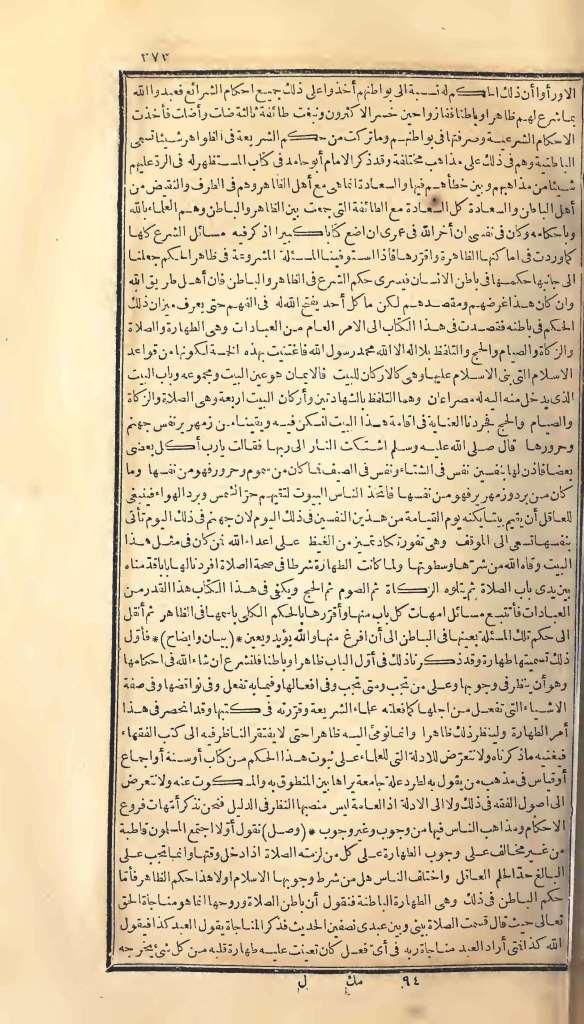 ٣٧٣
الا ورأوا أن ذلك الحكم له نسبة الى بواطنهم أخذوا على ذلك جميع احكام الشرائع فعبدوا الله
بما شرع لهم ظاهرا وباطنا ففازوا حين خسر الاكثرون ونبغت طائفة ثالثة ضلت وأضلت فأخذت
الاحكام الشرعية وصرفتها فى بواطنهم وما تركت من حكم الشريعة فى الظواهر شيئا تسمى
الباطنية وهم فى ذلك على مذاهب مختلفة وقد ذكر الامام أبو حامد فى كتاب المستظهر له فى الرد عليهم
شيئا من مذاهبهم وبين خطأهم فيها والسعادة انما هى مع أهل الظاهر وهم فى الطرف والنقيض من
أهل الباطن والسعادة كل السعادة مع الطائفة التى جمعت بين الظاهر والباطن وهم العلماء بالله
وباحكامه وكان فى نفسى ان أخر الله فى عمرى ان اضع كتابا كبيرا اذكر فيه مسائل الشرع كلها
كما وردت فى اماكنها الظاهرة واقررها فاذا استوفينا المسئلة المشروعة فى ظاهر الحكم جعلنا
الى جانبها حكمها فى باطن الانسان فيسرى حكم الشرع فى الظاهر والباطن فان أهل طريق الله
وان كان هذا غرضهم ومقصدهم لكن ما كل أحد يفتح الله له فى الفهم حتى يعرف ميزان ذلك
الحكم فى باطنه فقصدت فى هذا الكتاب الى الامر العام من العبادات وهى الطهارة والصلاة
والزكاة والصيام والحج والتلفظ بلا اله الا الله محمد رسول الله فاعتنيت بهذه الخمسة لكونها من قواعد
الاسلام التى بنى الاسلام عليها وهى كالاركان للبيت فالايمان هو عين البيت ومجموعه وباب البيت
الذى يدخل منه اليه له مصراعان وهما التلفظ بالشهادتين وأركان البيت اربعة وهى الصلاة والزكاة
والصيام والحج فجردنا العناية فى اقامة هذا البيت لنسكن فيه ويقينا من زمهرير نفس جهنم
وحرورها قال صلى الله عليه وسلم اشتكت النار الى ربها فقالت يا رب أكل بعضى
بعضا فاذن لها بنفسين نفس فى الشتاء ونفس فى الصيف فما كان من سموم وحرور فهو من نفسها وما
كان من برد وزمهرير فهو من نفسها فاتخذ الناس البيوت لتقيهم حر الشمس وبرد الهواء فينبغى
للعاقل أن يقيم بيتا يكنه يوم القيامة من هذين النفسين فى ذلك اليوم لان جهنم فى ذلك اليوم تأتى
بنفسها تسعى الى الموقف وهى تفور تكاد تميز من الغيظ على اعداء الله فمن كان فى مثل هذا
البيت وقاه الله من شرها وسطوتها ولما كانت الطهارة شرطا فى صحة الصلاة افردنا لها بابا قدمناه
بين يدى باب الصلاة ثم يتلوه الزكاة ثم الصوم ثم الحج ويكنى فى هذا الكتاب هذا القدر من
العبادات فأتتبع مسائل امهات كل باب منها وأقررها بالحكم الكلى باسمها فى الظاهر ثم أنتقل
الى حكم تلك المسئلة بعينها فى الباطن الى أن افرغ منها والله يؤيد ويعين * (بيان وايضاح) * فأول
ذلك تسميتها طهارة وقد ذكرنا ذلك فى أول الباب ظاهرا وباطنا فلنشرع ان شاء الله فى احكامها
وهو أن ينظر فى وجوبها وعلى من تجب ومتى تجب وفى افعالها وفيما به تفعل وفى نواقضها وفى صفة
الاشياء التى تفعل من اجلها كما فعلته علماء الشريعة وقررته فى كتبها وقد انحصر فى هذا
أمر الطهارة ولينظر ذلك ظاهرا وانما نومئ اليه ظاهرا حتى لا يفتقر الناظر فيه الى كتب الفقهاء
فيغنيه ما ذكرناه ولا نتعرض للادلة التى للعلماء على ثبوت هذا الحكم من كتاب أو سنة أو اجماع
أو قياس فى مذهب من يقول به لطرد علة جامعة يراها بين المنطوق به والمسكوت عنه ولا نتعرض
الى اصول الفقه فى ذلك ولا الى الادلة اذ العامة ليس منصبها النظر فى الدليل فنحن نذكر أمهات فروع
الاحكام ومذاهب الناس فيها من وجوب وغير وجوب * (وصل) نقول أولا اجتمع المسلمون قاطبة
من غير مخالف على وجوب الطهارة على كل من لزمته الصلاة اذا دخل وقتها وانما تجب على
البالغ حد الحلم العاقل واختلف الناس هل من شرط وجوبها الاسلام اولا هذا حكم الظاهر فأما
حكم الباطن فى ذلك وهى الطهارة الباطنة فنقول أن باطن الصلاة وروحها انما هو مناجاة الحق
تعالى حيث قال قسمت الصلاة بينى وبين عبدى نصفين الحديث فذكر المناجاة يقول العبد كذا فيقول
الله كذا فمتى أراد العبد مناجاة ربه فى أى فعل كان تعينت عليه طهارة قلبه من كل شئ يخرجه
٩٤ مك ل